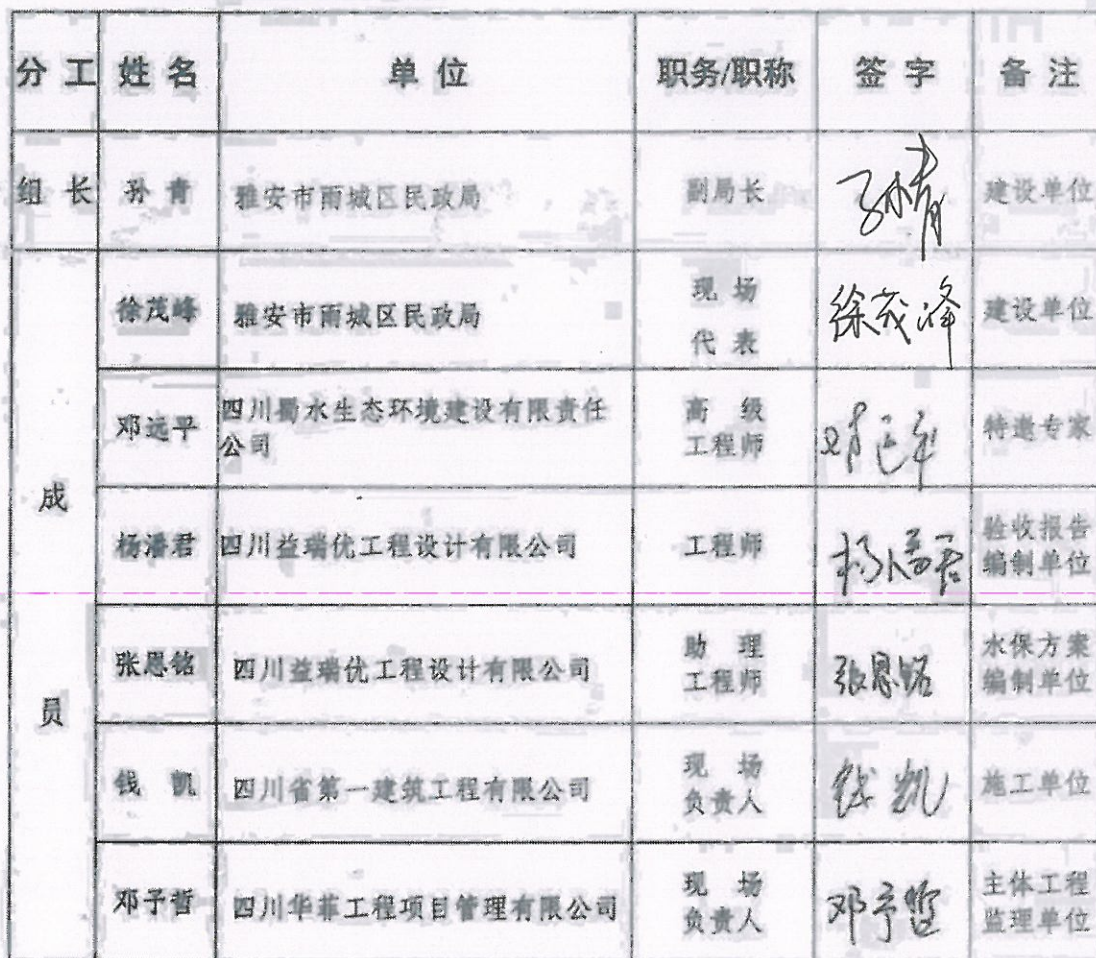 分工 姓名 单位 职务/职称 签字 备注
组长 孙青 雅安市雨城区民政局 副局长 孙青 建设单位
成员
徐茂峰 雅安市雨城区民政局 现场 徐茂峰 建设单位
代表
邓远平 四川蜀水生态环境建设有限责任 高级 邓远平 特邀专家
公司 工程师
杨潘君 四川益瑞优工程设计有限公司 工程师 杨潘君 验收报告
编制单位
张恩铭 四川益瑞优工程设计有限公司 助理 张恩铭 水保方案
工程师 编制单位
钱凯 四川省第一建筑工程有限公司 现场 钱凯 施工单位
负责人
邓予哲 四川华菲工程项目管理有限公司 现场 邓予哲 主体工程
负责人 监理单位